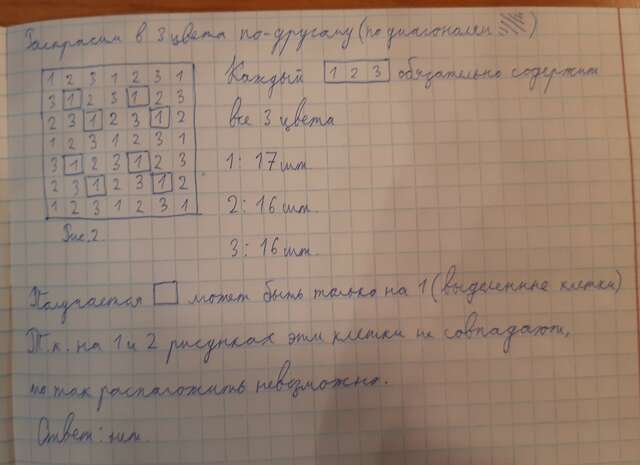 Раскрасим в 3 цвета по-другому (по диагонали )
1 2 3 1 2 3 1
3 1 2 3 1 2 3
2 3 1 2 3 1 2
1 2 3 1 2 3 1
3 1 2 3 1 2 3
2 3 1 2 3 1 2
1 2 3 1 2 3 1
Рис. 2
Каждый 1 2 3 обязательно содержит
все 3 цвета
1: 17 шт.
2: 16 шт.
3: 16 шт.
Получается может быть только на 1 (выделенные клетки)
Т.к. на 1 и 2 рисунках эти клетки не совпадают,
то так расположить невозможно.
Ответ: нет.